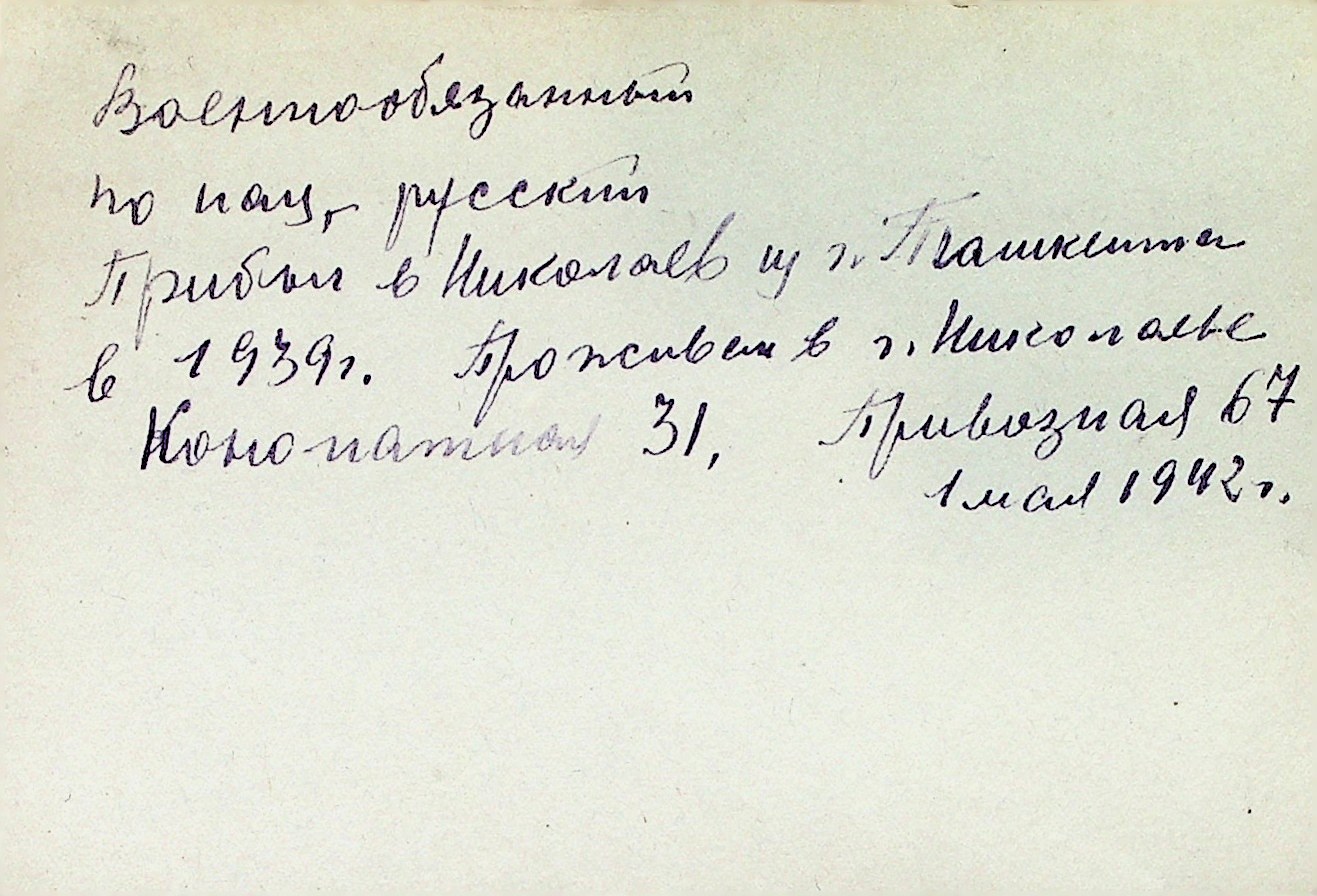 Военнообязанный
по нац, русский
Прибыл в Николаев из г. Ташкента
в 1939г. Проживал в г. Николаеве
Конопатная 31, Привозная 67
1 мая 1942 г.